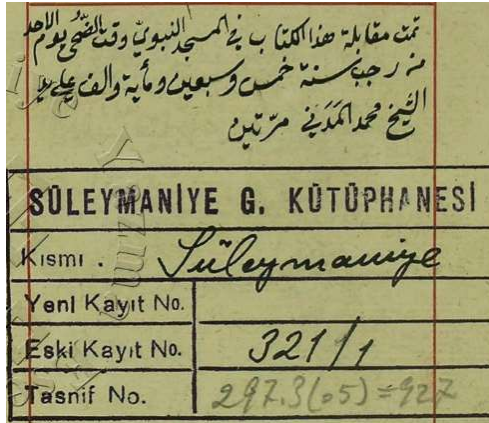 تمت مقابلة هذا الكتاب في المسجد النبوي وقت الضحى يوم الاحد
من رجب سنة خمس وسبعين ومأية والف على يد
الشيخ محمد المدني مرتين
SÜLEYMANİYE G. KÜTÜPHANESİ
Kısmı . Süleymaniye
Yeni Kayıt No.
Eski Kayıt No. 321/1
Tasnif No. 297.3(05)=927